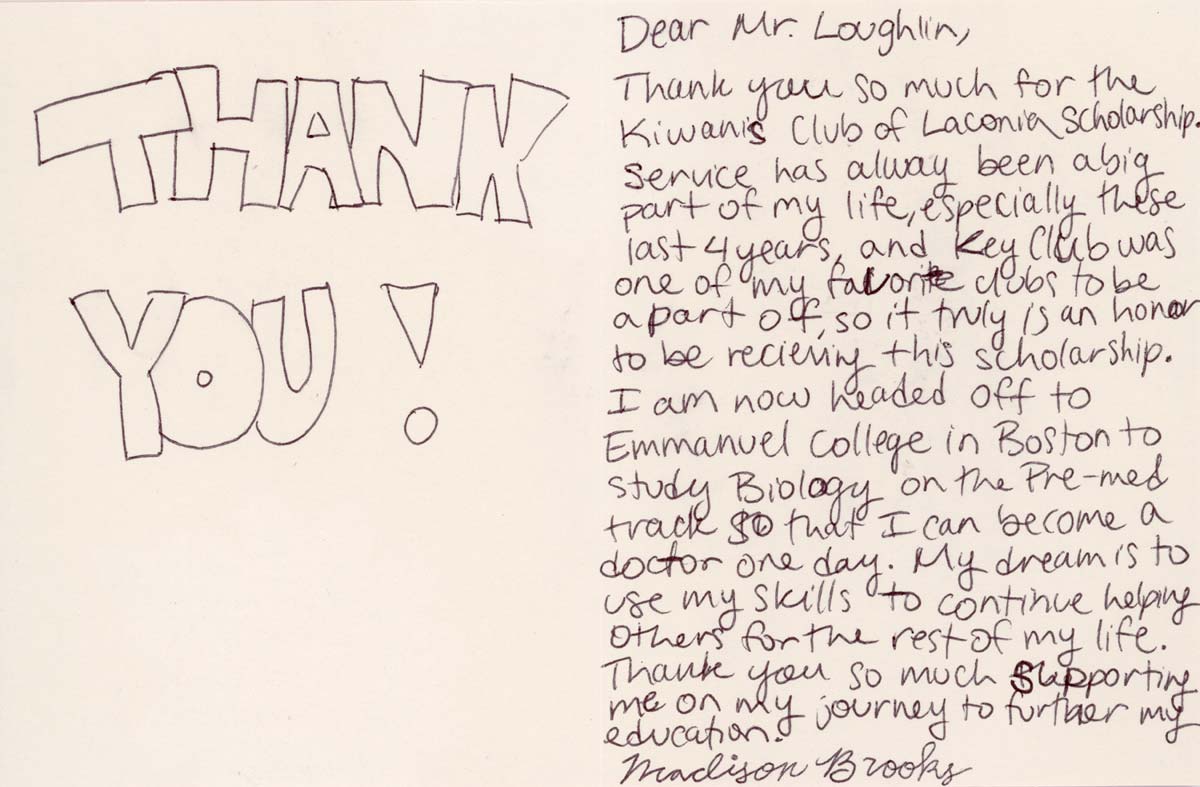 THANK
YOU!
Dear Mr. Loughlin,
Thank you so much for the
Kiwanis Club of Laconia Scholarship.
Service has alway been a big
part of my life, especially these
last 4 years, and Key Club was
one of my favorite clubs to be
apart of, so it truly is an honor
to be recieving this scholarship.
I am now headed off to
Emmanuel College in Boston to
study Biology on the Pre-med
track so that I can become a
doctor one day. My dream is to
use my skills to continue helping
others for the rest of my life.
Thank you so much supporting
me on my journey to further my
education.
Madison Brooks